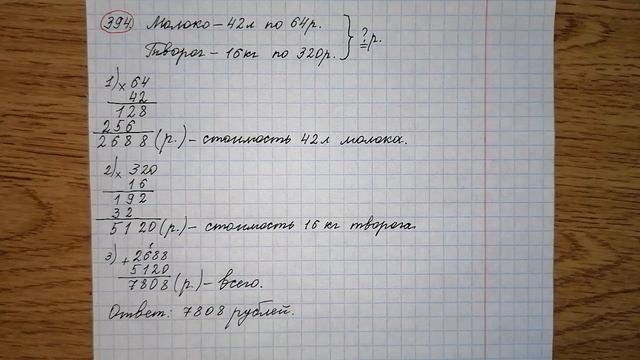 394 Молоко – 42л по 64р.
Творог – 16кг по 320р. } ? р.
1) × 64
42
128
256
2688 (р.) – стоимость 42л молока.
2) × 320
16
192
32
5120 (р.) – стоимость 16 кг творога.
3) + 2688
5120
7808 (р.) – всего.
Ответ: 7808 рублей.